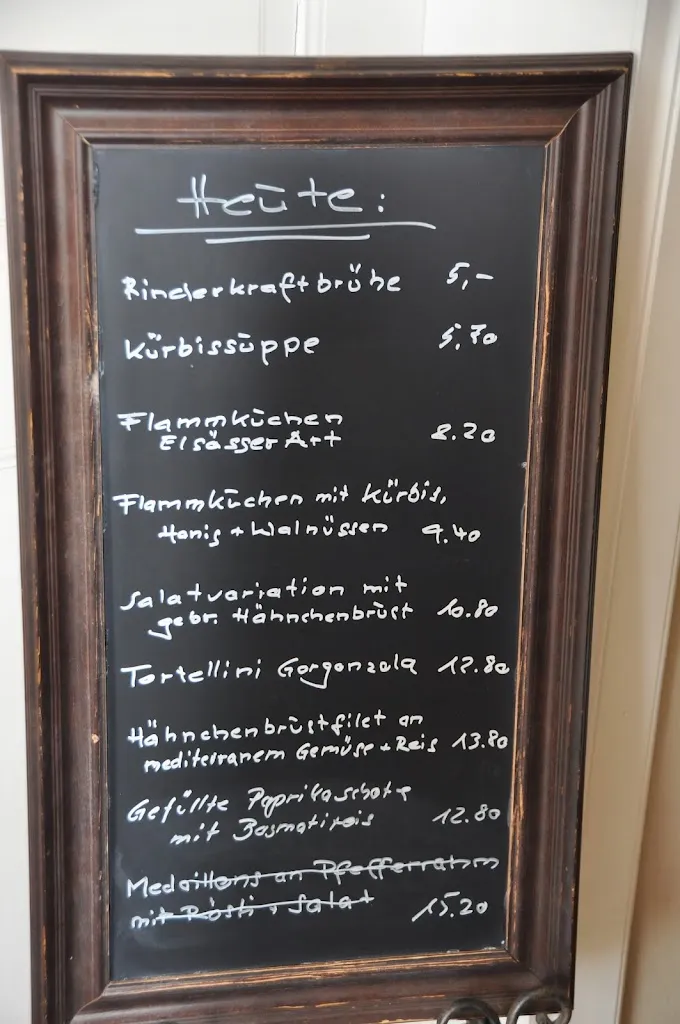 Heute:
Rinderkraftbrühe 5,-
Kürbissuppe 5,70
Flammkuchen
Elsässer Art 8.20
Flammkuchen mit Kürbis,
Honig + Walnüssen 9.40
Salatvariation mit
gebr. Hähnchenbrust 10.80
Tortellini Gorgonzola 12.80
Hähnchenbrustfilet an
mediterranem Gemüse + Reis 13.80
Gefüllte Paprikaschote
mit Basmatireis 12.80
Medaillons an Pfefferrahm
mit Rösti + Salat 15.20